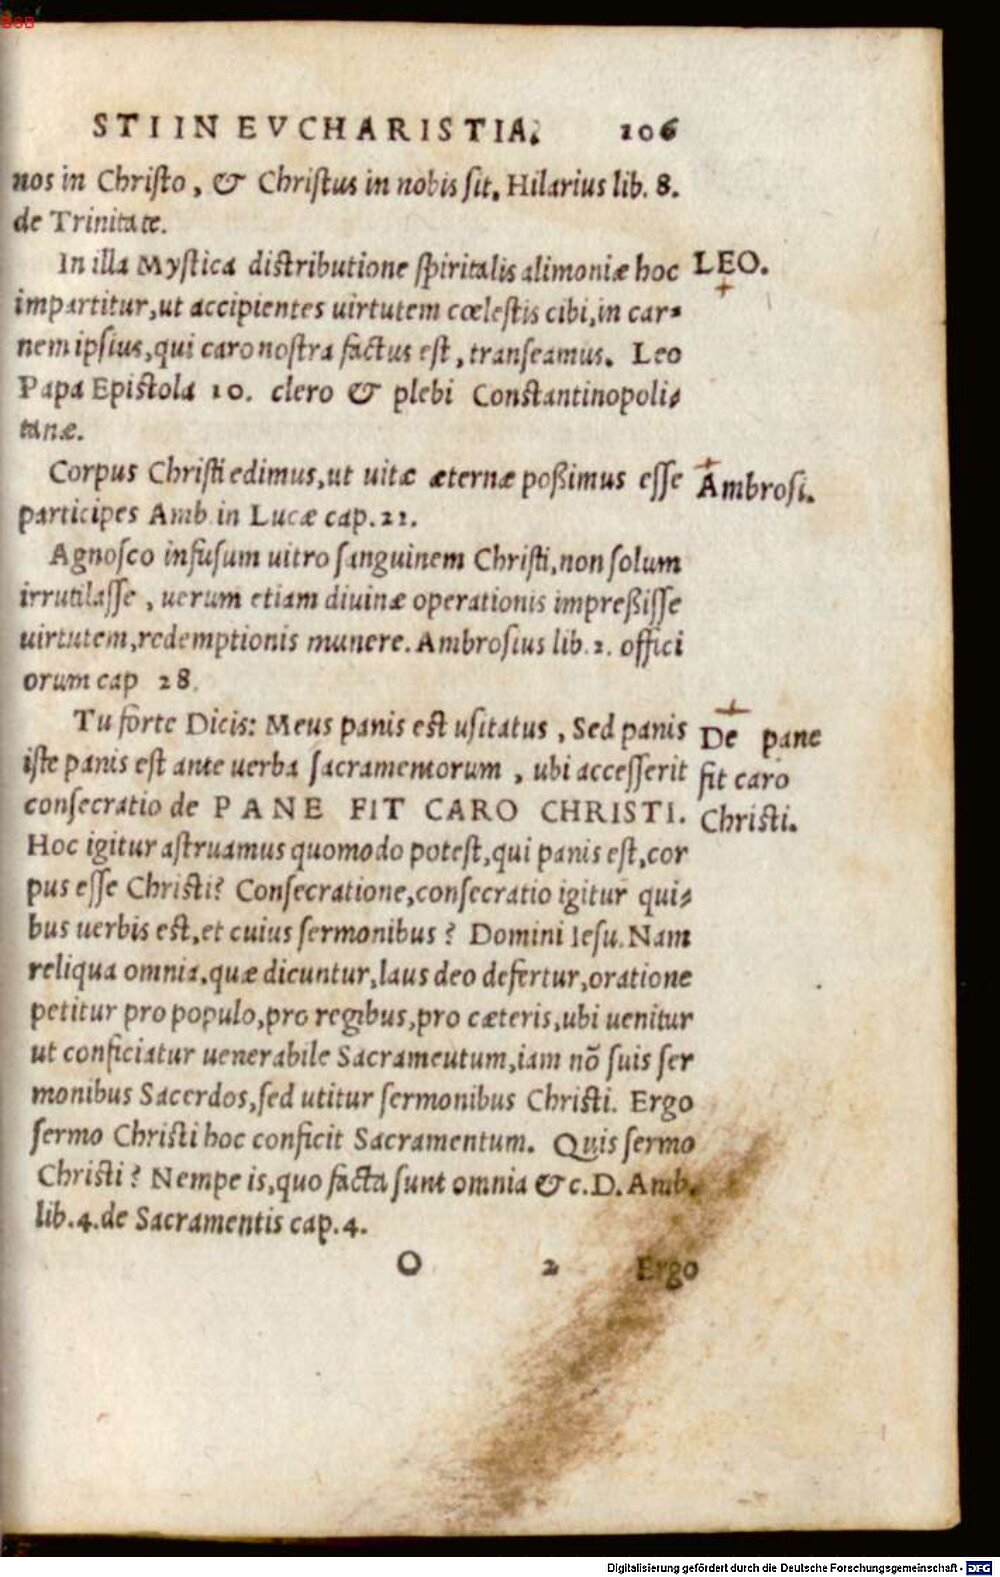 BSB
STI IN EVCHARISTIA. 106
nos in Christo, & Christus in nobis sit. Hilarius lib. 8.
de Trinitate.
In illa Mystica distributione spiritalis alimoniæ hoc
LEO.
impartitur, ut accipientes uirtutem cœlestis cibi, in car=
nem ipsius, qui caro nostra factus est, transeamus. Leo
Papa Epistola 10. clero & plebi Constantinopoli=
tanæ.
Corpus Christi edimus, ut uitæ æternæ poßimus esse
Ambrosi.
participes Amb in Lucæ cap. 21.
Agnosco infusum uitro sanguinem Christi, non solum
irrutilasse, uerum etiam diuinæ operationis impreßisse
uirtutem, redemptionis munere. Ambrosius lib. 2. offici
orum cap 28.
Tu forte Dicis: Meus panis est usitatus, Sed panis
De pane
iste panis est ante uerba sacramentorum, ubi accesserit
fit caro
consecratio de PANE FIT CARO CHRISTI.
Christi.
Hoc igitur astruamus quomodo potest, qui panis est, cor
pus esse Christi? Consecratione, consecratio igitur qui=
bus uerbis est, et cuius sermonibus? Domini Iesu. Nam
reliqua omnia, quæ dicuntur, laus deo defertur, oratione
petitur pro populo, pro regibus, pro cæteris, ubi uenitur
ut conficiatur uenerabile Sacrameutum, iam nõ suis ser
monibus Sacerdos, sed utitur sermonibus Christi. Ergo
sermo Christi hoc conficit Sacramentum. Quis sermo
Christi? Nempe is, quo facta sunt omnia &c. D. Amb.
lib. 4. de Sacramentis cap. 4.
O 2 Ergo
Digitalisierung gefördert durch die Deutsche Forschungsgemeinschaft - DFG